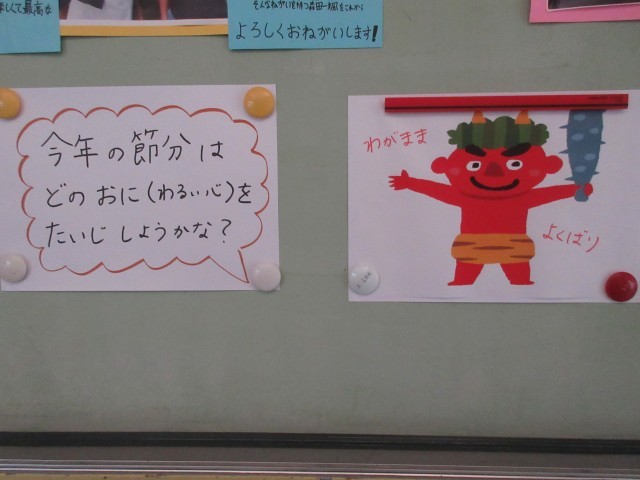 て最高な
よろしくおねがいします!
今年の節分は
どのおに(わるい心)を
たいじしようかな?
わがまま
よくばり